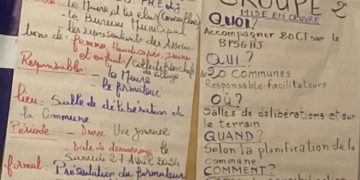 P.H.E.N.J
le Maire et les élus
le Bureau Municipal
des représentants des Associa-
tions de femme, Handicapée, Jeunes
et enfants
Responsables - le Maire
le formateur
lieu: Salle de délibération de
la Commune
Période: - Duree Une Journée
Date de demarrage le
Samedi 27 Avril
format Présentation du formateur
GROUPE 2
MISE EN OEUVRE
QUOI?
Accompagner 20 CT sur le
QUI?
20 communes
Responsable facilitateurs
OÙ?
Salles de délibérations et sur
le terrain
QUAND?
Selon la planification de la
commune
COMMENT?